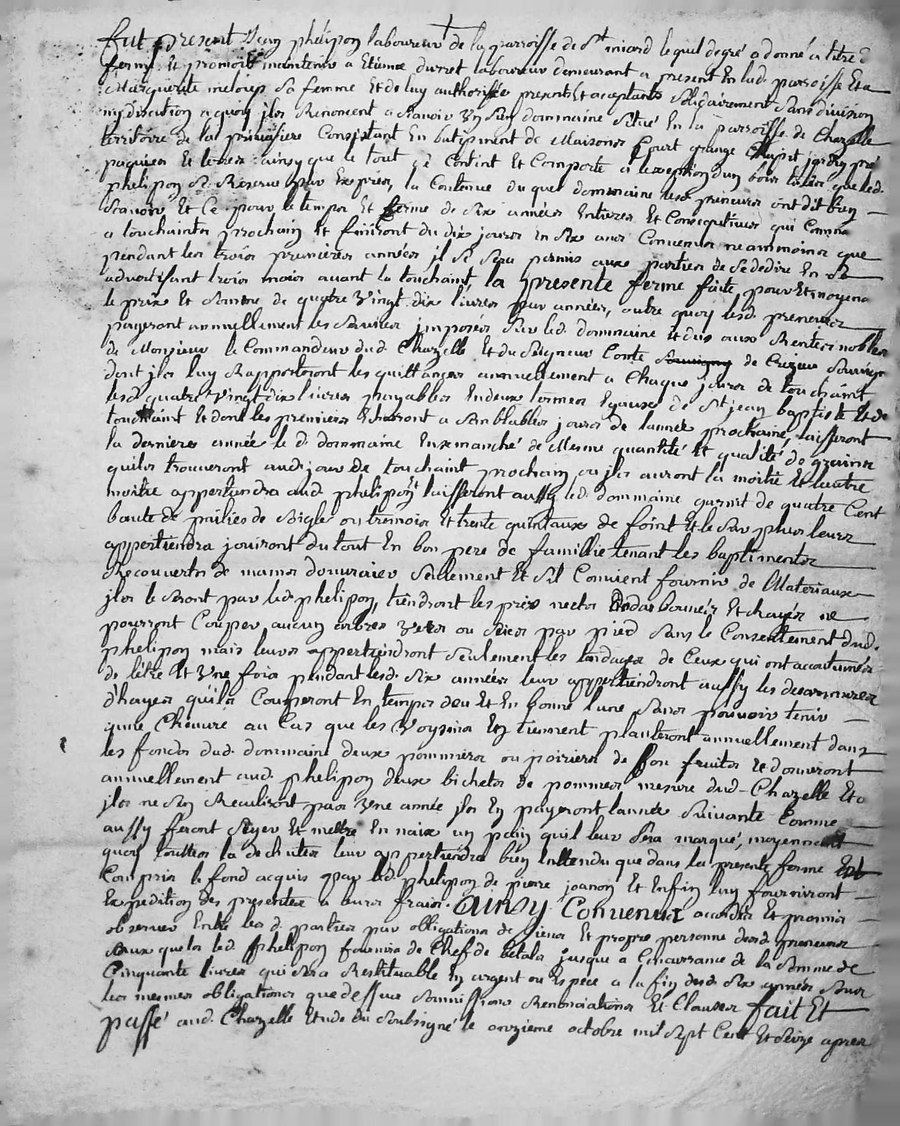 fut present Jean phelipon laboureur de la parroisse de St iniard lequel de gré a donné a titre d
ferme et promois maintenir a Etiene durret laboureur demeurant a present En lad. parroisse Et a
Marguerite meloup Sa femme Et de luy authorisée presents Et aceptants Solidairement Sans division
ny discution a quoy jls Renoncent a Scavoir Un Sien dommaine Situé En la parroisse de Chazelle
territoire de la Consistant En batiment de Maisons Court grange Chapit jardin pré
paquiers Et terres ainsy que le tout Se Contint Et Comporte a lexception dun bois taillis que led.
phelipon Se Reserve par Exprès, la Contenue du quel dommaine lesd. preneurs ont dit bien
Scavoir Et Ce pour le temps Et ferme de Six années Entieres Et Consequtives qui Comm.
a touchaints prochain Et finiront du dix jours En Six ans Convenus neammoins que
pendant les trois premieres années jl Se Sera permis aux parties de Se dedire En Se
advertissant trois mois avant la touchaint, la presente ferme faite pour Et moyena
le prix Et Somme de quatre Vingt dix livres par années, outre quoy lesd. preneurs
payeront annuellement les Servis imposés Sur led. dommaine Et dus aux Rentes nobles
de Monsieur le Commandeur dud. Chazelle Et du Seigneur Conte de
dont jls luy Rapporteront les quittances annuellement a Chaque jours de touchaint
lesd. quatre Vingt dix livres payables En deux termes Egaux de St jean baptiste Et de
touchaint Et dont les premiers Echeront a Semblables jours de lannée prochaine, laisseront
la derniere année le d. dommaine Ensemanché de Mesme quantité Et qualité de grains
quils trouveront aud. jour de touchaint prochain ou jls auront la moitié Et lautre
moitie appertiendra aud. phelipon, laisseront aussy led. dommaine garnit de quatre Cent
baute de pailies de Seigle ou tremois Et trente quintaux de foint Et le Surplus leurs
appertiendra jouiront du tout En bon pere de famillie tenant les baptiments
Recouverts de mains douvraiers Seulement Et Sil Convient fournir de Materiaux
jls le Seront par led. phelipon, tiendront les prés nectes Et hayés ne
pourront Couper aucun arbres Verts ou Secs par pied Sans le Consentement dud.
phelipon mais leurs appertiendront Seulement les landages de Ceux qui ont acoutumés
de lêtre Et Une fois pendant lesd. Six années leur appertiendront aussy les
dhayes quils Couperont En temps deu Et En bonne lune Sans pouvoir tenir
que Chèuvre au Cas que les Voysins En tiennent planteront annuellement dans
les fonds dud. dommaine deux pommiers ou poiriers de bon fruits Et donneront
annuellement aud. phelipon deux bichets de pommes mesure dud. Chazelle Et Si
jls ne Sen Reculissent pas Une année jls En payeront lannée Suivante Comme
aussy feront Seyer Et mettre En naix un pain quil leur Sera marqué, moyennant
quoy touttes la de chutes leur appertiendra bien Entendu que dans la presente ferme Est
Compris le fond acquis par led. phelipon de pierre joanon Et Enfin luy fourniront
Expedition des presentes a leurs frais. Ainsy Convenus accordés Et promis
observer Entre les d. parties par obligations de biens Et propre personne desd. preneurs
auxquels led. phelipon fournira de Chef de betals jusque a Concurrance de la Somme de
Cinquante livres qui Sera Restituable En argent ou Espèce a la fin desd. Six années Sur
les mesmes obligations que dessus Soumissions Renonciations Et Clauses fait Et
passé aud. Chazelle Etude du Soubsigné le onzieme octobre mil Sept Cent Et Seize apres